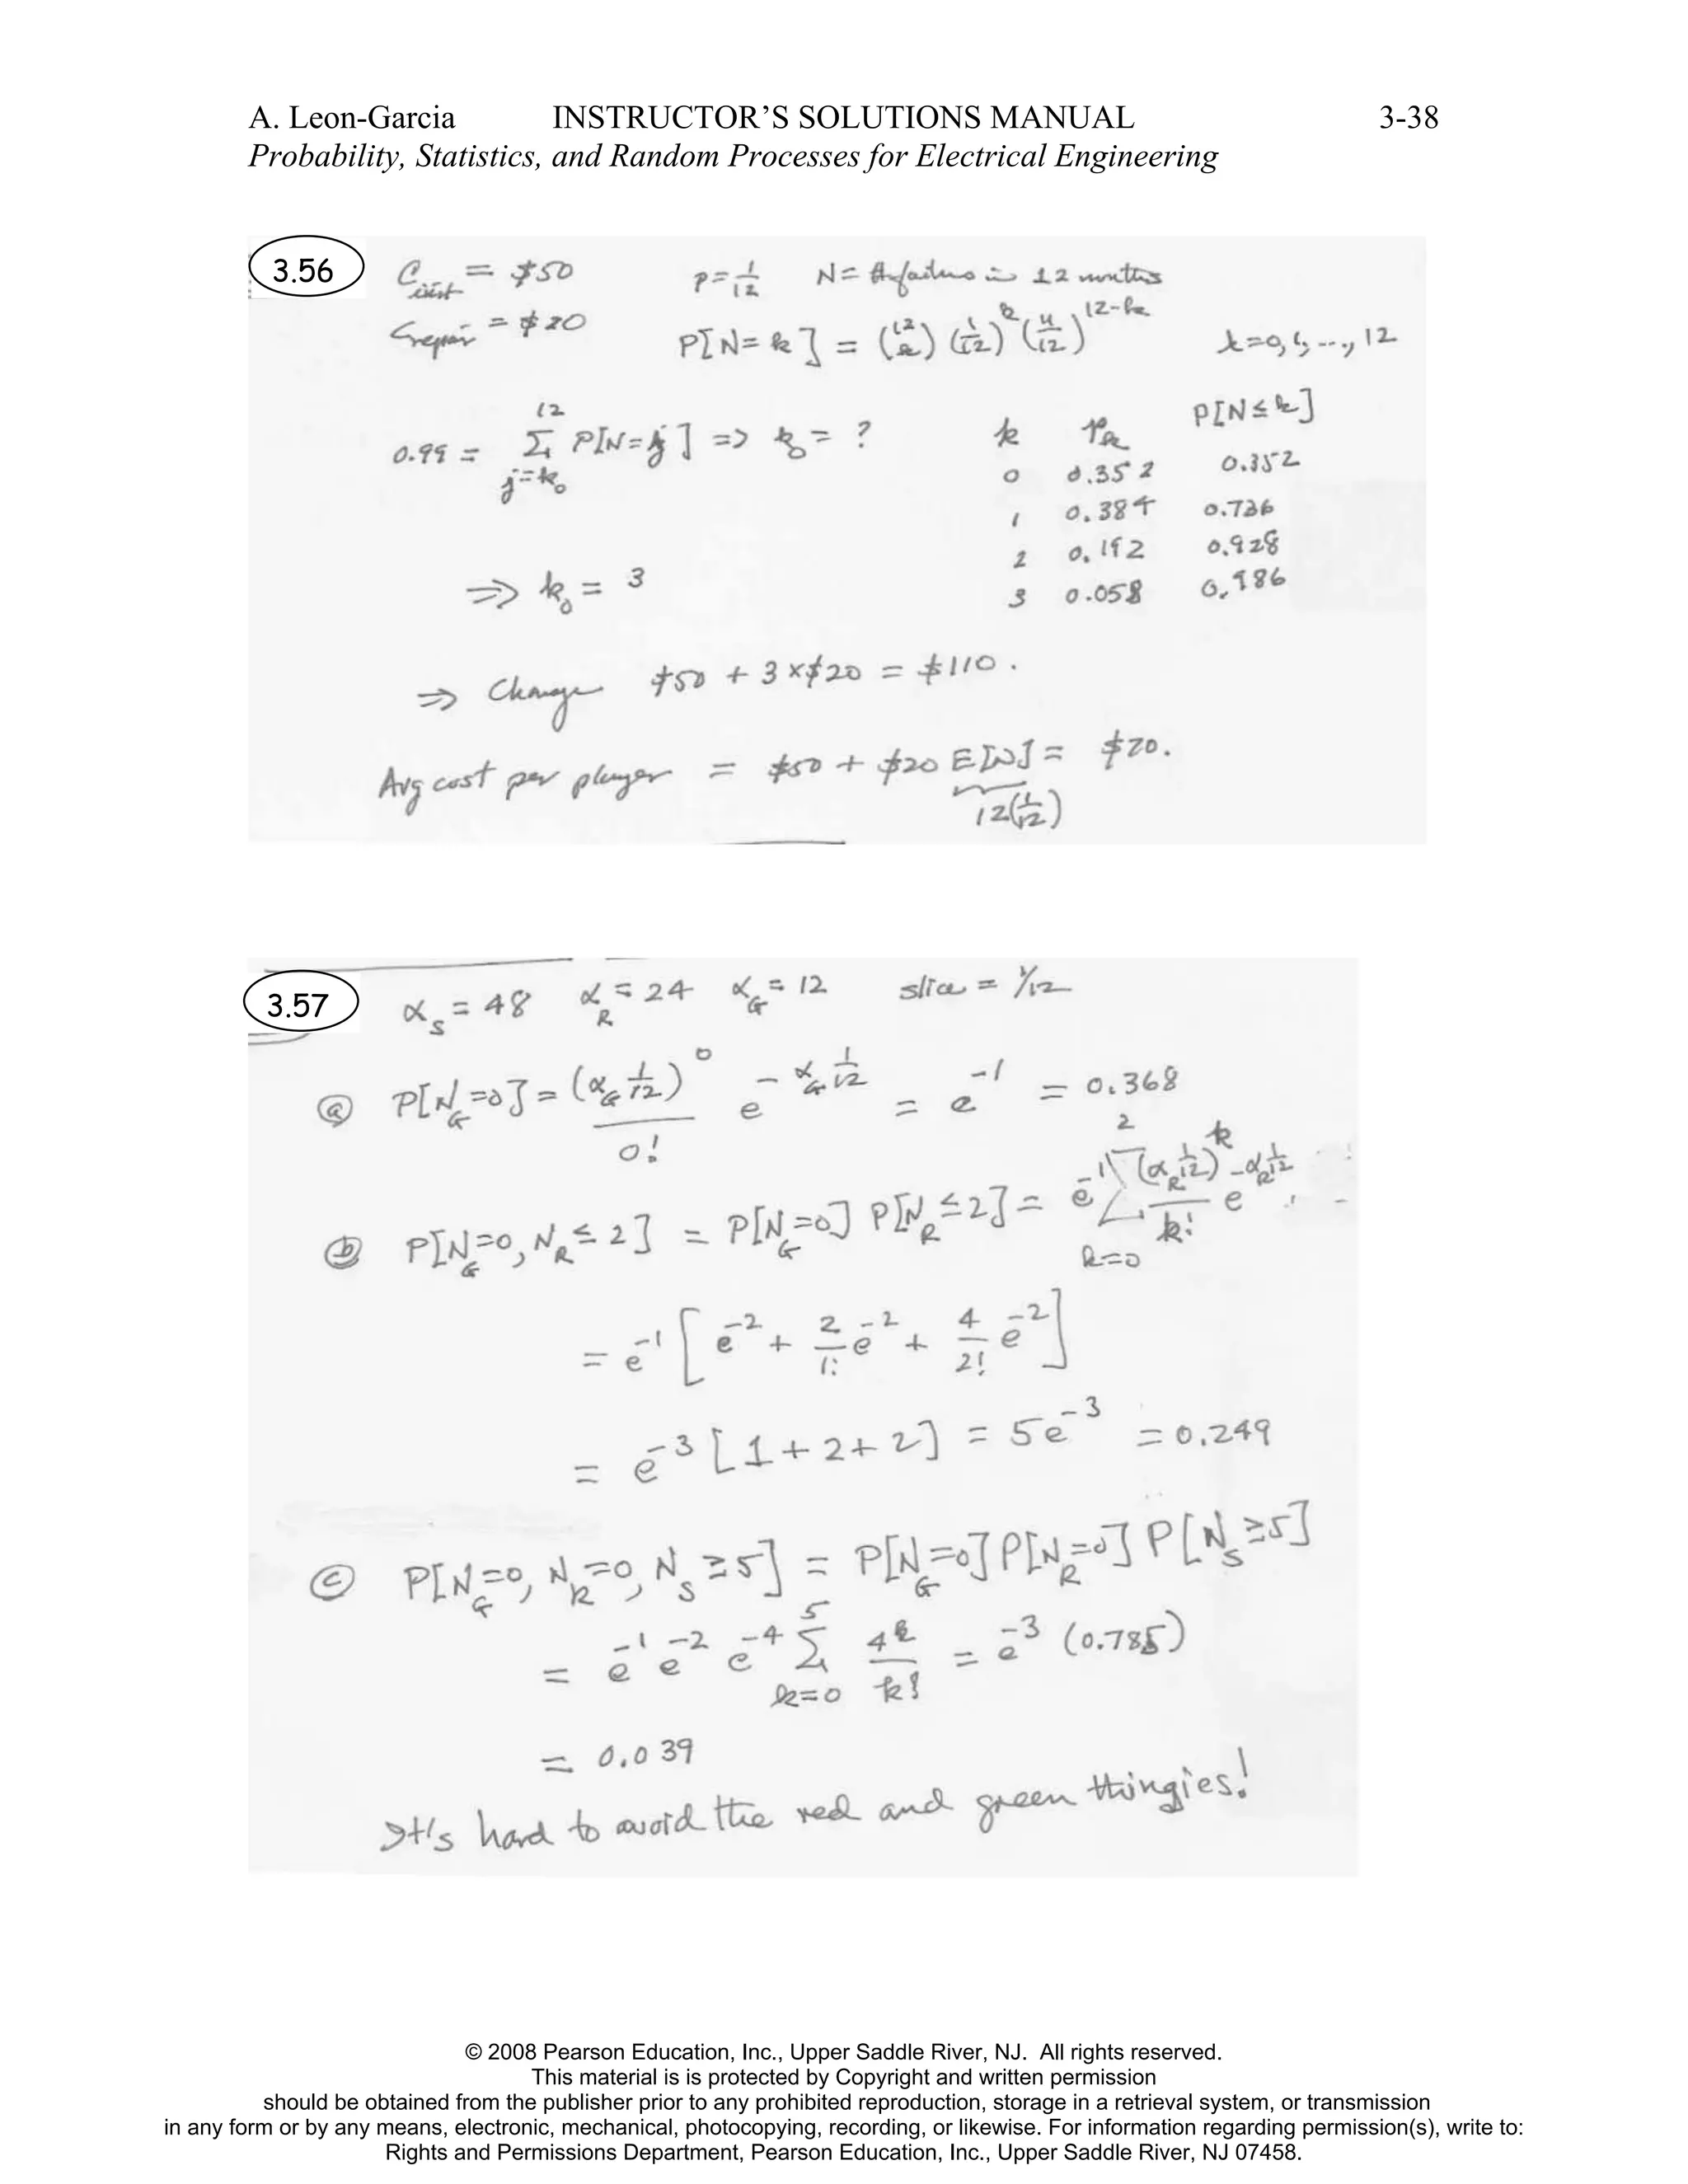 A. Leon-Garcia INSTRUCTOR'S SOLUTIONS MANUAL 3-38
Probability, Statistics, and Random Processes for Electrical Engineering
3.56
C = $50 p = 1/12 N = # failures in 12 months
C_repair = $20 P[N = k] = (12 k) (1/12)^k (11/12)^12-k k = 0, 1, ..., 12
0.99 = Σ_{j=k_0}^{12} P[N = j] => k_0 = ? k p_k P[N ≤ k]
0 0.352 0.352
1 0.384 0.736
2 0.192 0.928
=> k_0 = 3 3 0.058 0.986
=> Charge $50 + 3 x $20 = $110.
Avg cost per player = $50 + $20 E[N] = $70.
12(1/12)
3.57
α_S = 48 α_R = 24 α_G = 12 slice = 1/12
(a) P[N_G = 0] = (α_G 1/12)^0 / 0! e^{-α_G 1/12} = e^{-1} = 0.368
(b) P[N_G = 0, N_R ≤ 2] = P[N_G = 0] P[N_R ≤ 2] = e^{-1} Σ_{k=0}^{2} (α_R 1/12)^k / k! e^{-α_R 1/12}
= e^{-1} [ e^{-2} + 2/1! e^{-2} + 4/2! e^{-2} ]
= e^{-3} [1 + 2 + 2] = 5e^{-3} = 0.249
(c) P[N_G = 0, N_R = 0, N_S ≥ 5] = P[N_G = 0] P[N_R = 0] P[N_S ≥ 5]
= e^{-1} e^{-2} e^{-4} Σ_{k=0}^{5} 4^k / k! = e^{-3} (0.785)
= 0.039
It's hard to avoid the red and green thingies!
© 2008 Pearson Education, Inc., Upper Saddle River, NJ. All rights reserved.
This material is is protected by Copyright and written permission
should be obtained from the publisher prior to any prohibited reproduction, storage in a retrieval system, or transmission
in any form or by any means, electronic, mechanical, photocopying, recording, or likewise. For information regarding permission(s), write to:
Rights and Permissions Department, Pearson Education, Inc., Upper Saddle River, NJ 07458.